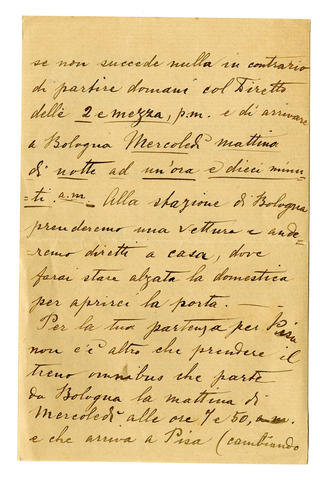 se non succede nulla in contrario
di partire domani col Diretto
delle 2 e mezza, p.m. e di arrivare
a Bologna Mercoledì mattina
di notte ad un'ora e dieci minu=
=ti a.m. Alla stazione di Bologna
prenderemo una vettura e ande=
=remo diretti a casa, dove
farai stare alzata la domestica
per aprirci la porta. —
Per la tua partenza per Pisa
non c'è altro che prendere il
treno omnibus che parte
da Bologna la mattina di
Mercoledì alle ore 7 e 50, a.m.
e che arriva a Pisa (cambiando